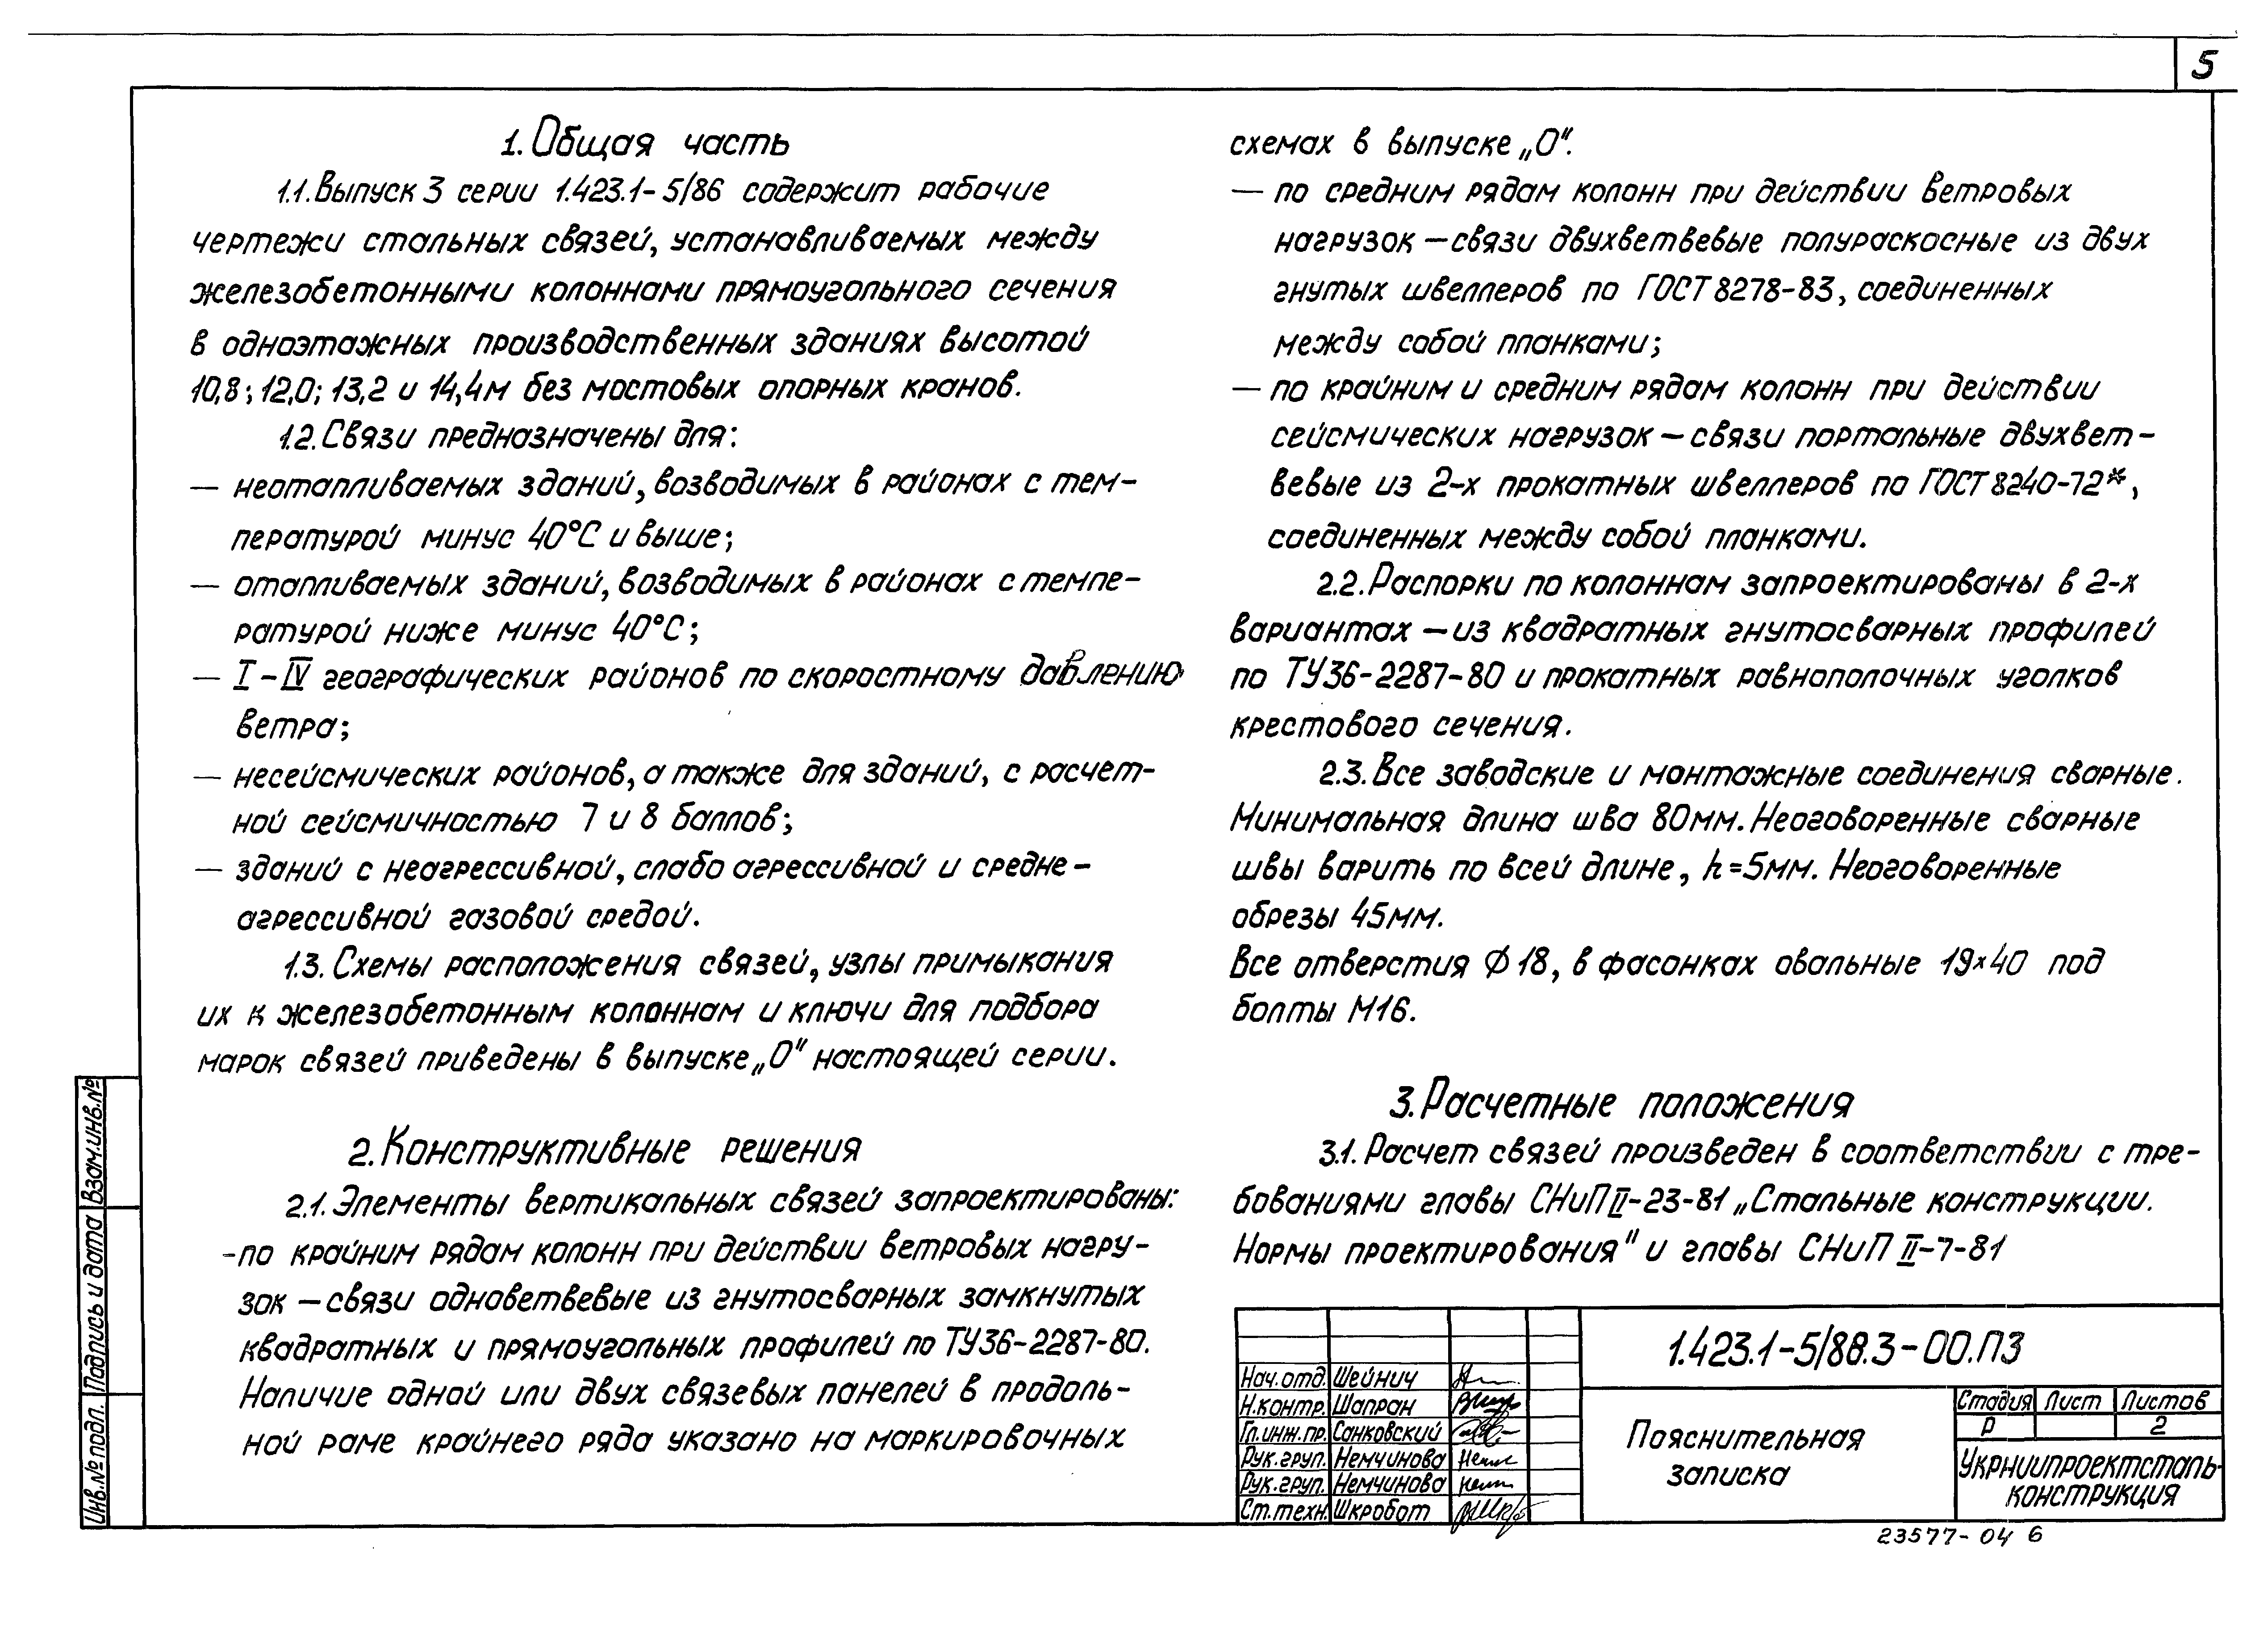 5
1. Общая часть
1.1. Выпуск 3 серии 1.423.1-5/86 содержит рабочие
чертежи стальных связей, устанавливаемых между
железобетонными колоннами прямоугольного сечения
в одноэтажных производственных зданиях высотой
10,8; 12,0; 13,2 и 14,4м без мостовых опорных кранов.
1.2. Связи предназначены для:
— неотапливаемых зданий, возводимых в районах с тем-
пературой минус 40°С и выше;
— отапливаемых зданий, возводимых в районах с темпе-
ратурой ниже минус 40°С;
— I-IV географических районов по скоростному давлению
ветра;
— несейсмических районов, а также для зданий, с расчет-
ной сейсмичностью 7 и 8 баллов;
— зданий с неагрессивной, слабо агрессивной и средне-
агрессивной газовой средой.
1.3. Схемы расположения связей, узлы примыкания
их к железобетонным колоннам и ключи для подбора
марок связей приведены в выпуске „0" настоящей серии.
2. Конструктивные решения
2.1. Элементы вертикальных связей запроектированы:
-по крайним рядам колонн при действии ветровых нагру-
зок — связи одноветвевые из гнутосварных замкнутых
квадратных и прямоугольных профилей по ТУ36-2287-80.
Наличие одной или двух связевых панелей в продоль-
ной раме крайнего ряда указано на маркировочных
схемах в выпуске „0".
— по средним рядам колонн при действии ветровых
нагрузок — связи двухветвевые полураскосные из двух
гнутых швеллеров по ГОСТ 8278-83, соединенных
между собой планками;
— по крайним и средним рядам колонн при действии
сейсмических нагрузок — связи портальные двухвет-
вевые из 2-х прокатных швеллеров по ГОСТ 8240-72*,
соединенных между собой планками.
2.2. Распорки по колоннам запроектированы в 2-х
вариантах — из квадратных гнутосварных профилей
по ТУ36-2287-80 и прокатных равнополочных уголков
крестового сечения.
2.3. Все заводские и монтажные соединения сварные.
Минимальная длина шва 80мм. Неоговоренные сварные
швы варить по всей длине, h=5мм. Неоговоренные
обрезы 45мм.
Все отверстия Ф 18, в фасонках овальные 19×40 под
болты М16.
3. Расчетные положения
3.1. Расчет связей произведен в соответствии с тре-
бованиями главы СНиП II-23-81 „Стальные конструкции.
Нормы проектирования" и главы СНиП II-7-81
1.423.1-5/88.3-00.ПЗ
Нач.отд. Шейнич
Н.контр. Шапран
Гл.инж.пр. Санковский
Рук.груп. Немчинова
Рук.груп. Немчинова
Ст.техн. Шкробот
Пояснительная
записка
Стадия Лист Листов
Р 2
Укрниипроектсталь-
конструкция
23577-04 6
Инв.№ подл. Подпись и дата Взам.инв.№